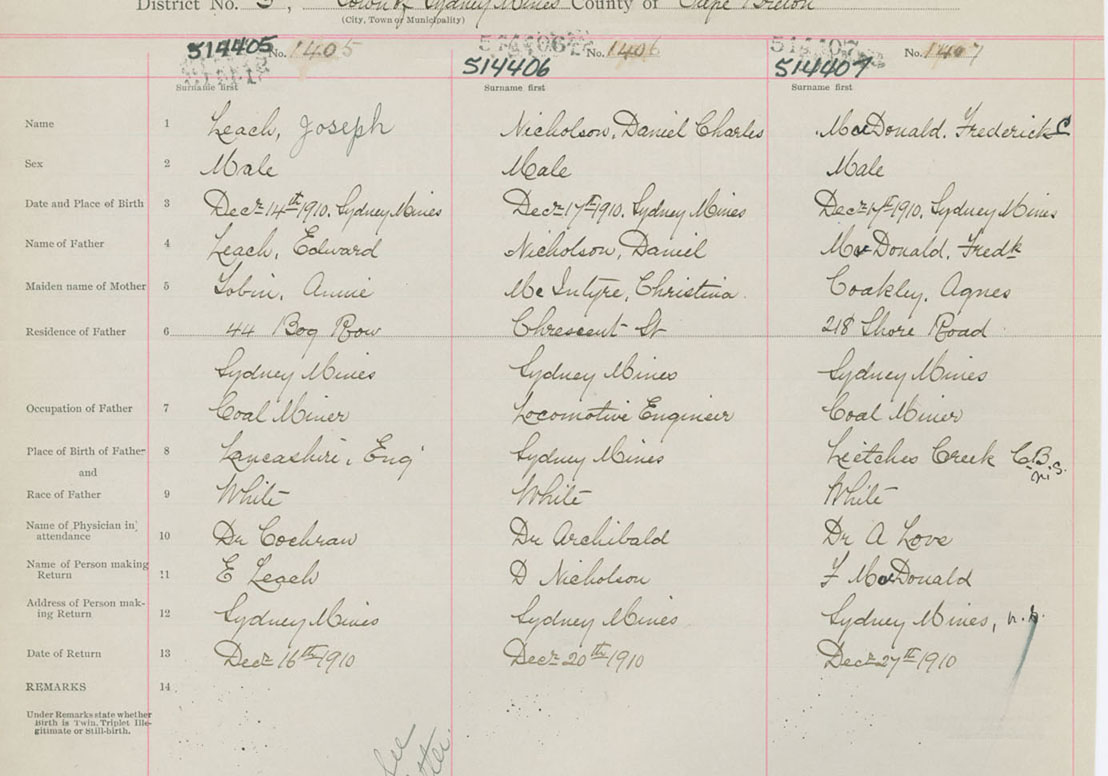 District No. 3, Town of Sydney Mines County of Cape Breton
(City, Town or Municipality)
514405 No. 1405 514406 No. 1406 514407 No. 1407
514406 514407
Surname first Surname first Surname first
Name 1 Leach, Joseph Nicholson, Daniel Charles MacDonald, Frederick C
Sex 2 Male Male Male
Date and Place of Birth 3 Decr 14th 1910, Sydney Mines Decr 17th 1910, Sydney Mines Decr 17th 1910, Sydney Mines
Name of Father 4 Leach, Edward Nicholson, Daniel MacDonald, Fredk
Maiden name of Mother 5 Tobin, Annie McIntyre, Christina Coakley, Agnes
Residence of Father 6 44 Bog Row Chrescent St 218 Shore Road
Sydney Mines Sydney Mines Sydney Mines
Occupation of Father 7 Coal Miner Locomotive Engineer Coal Miner
Place of Birth of Father 8 Lancashire, Eng Sydney Mines Lietches Creek C.B.
and N.S.
Race of Father 9 White White White
Name of Physician in
attendance 10 Dr Cochran Dr Archibald Dr A Love
Name of Person making
Return 11 E Leach D Nicholson F MacDonald
Address of Person mak-
ing Return 12 Sydney Mines Sydney Mines Sydney Mines, N.S.
Date of Return 13 Decr 16th 1910 Decr 20th 1910 Decr 27th 1910
REMARKS 14
Under Remarks state whether
Birth is Twin, Triplet Ille-
gitimate or Still-birth.
See